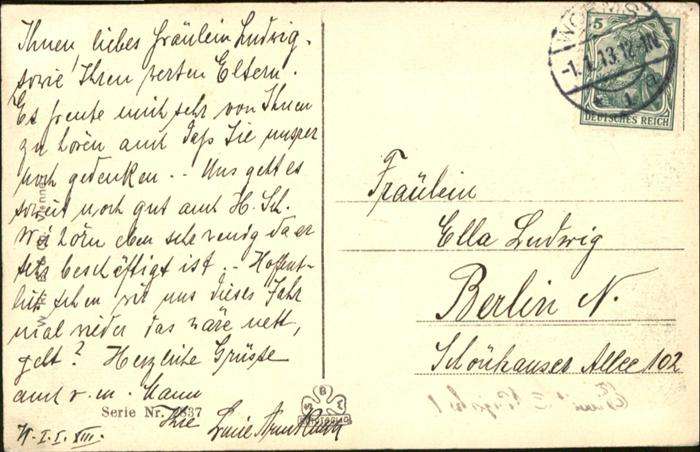 Ihnen liebes Fräulein Ludwig.
sowie Ihren werten Eltern.
Es freute mich sehr von Ihnen
zu hören auch daß Sie unsrer
noch gedenken. - Uns geht es
soweit noch gut auch H. Sch.
Wir hörn eben sehr wenig da er
sehr beschäftigt ist. - Hoffent-
lich sehen wir uns dieses Jahr
mal wieder das wäre nett,
gelt? Herzliche Grüsse
auch v. m. Mann
Ihre Lucie
Serie Nr. 537
1. I. XIII.
WORMS
-1.1.13.12-1N
1 a
5
DEUTSCHES REICH
Fräulein
Ella Ludwig
Berlin N.
Schönhauser Allee 102
S B W